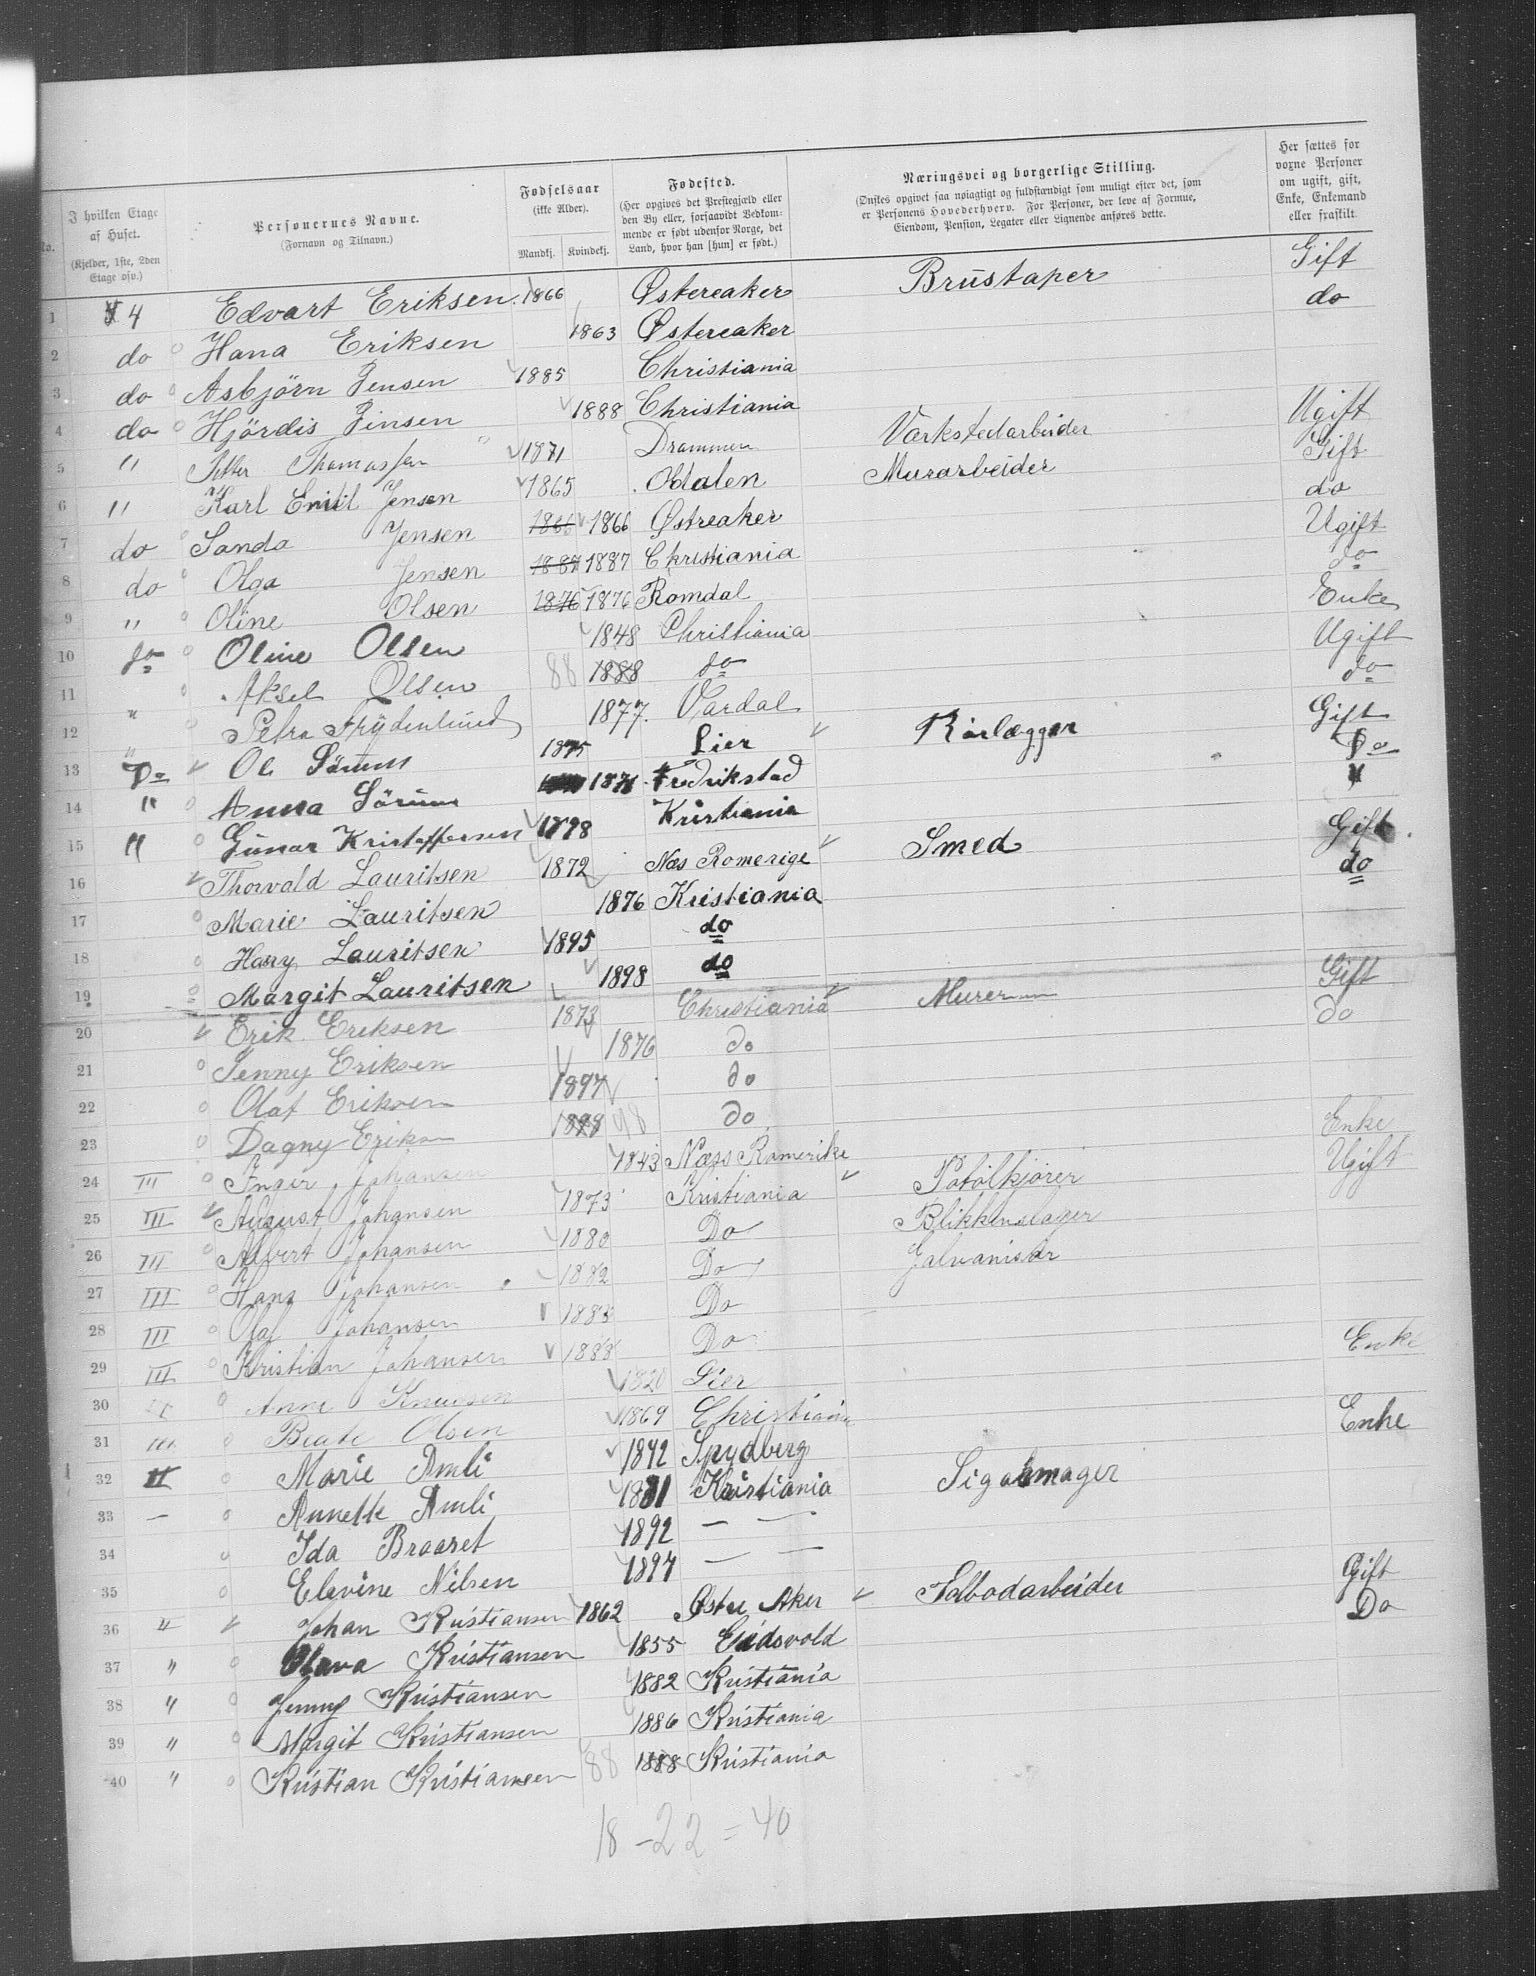 No.
I hvilken Etage af Huset. (Kjelder, 1ste, 2den Etage osv.)
Personernes Navne. (Fornavn og Tilnavn.)
Fødselsaar (ikke Alder).
Mandkj. Kvindekj.
Fødested. (Her opgives det Prestegjæld eller den By eller, forsaavidt Bedkommende er født udenfor Norge, det Land, hvor han [hun] er født.)
Næringsvei og borgerlige Stilling. (Ønskes opgivet saa nøiagtigt og fuldstændigt som muligt efter det, som er Personens Hovederhverv. For Personer, der leve af Formue, Eiendom, Pension, Legater eller Lignende anføres dette.)
Her sættes for voxne Personer om ugift, gift, Enke, Enkemand eller fraskilt.
1 4 Edvart Eriksen 1866 Østereaker Brustaper Gift
2 do Hana Eriksen 1863 Østereaker do
3 do Asbjörn Jensen 1885 Christiania
4 do Hjördis Jinsen 1888 Christiania
5 " Petter Thomassen 1871 Drammen Værkstedarbeider Ugift
6 " Karl Emil Jensen 1865 Odalen Murarbeider Gift
7 do Sanda Jensen 1866 1866 Østreaker do
8 do Olga Jensen 1887 1887 Christiania Ugift
9 " Oline Olsen 1876 1876 Romdal do
10 do Oline Olsen 1848 Christiania Enke
11 Aksel Olsen 88 1888 do Ugift
12 " Petra Frydenlund 1877 Vardal do
13 Do Ol Sörum 1875 Lier Rörlægger Gift
14 " Anna Sörum 1871 Fredrikstad Do
15 " Gunar Kristoffersen 1898 Kristiania
16 Thorvald Lauritsen 1872 Næs Romerige Smed Gift
17 Marie Lauritsen 1876 Kristiania do
18 Harry Lauritsen 1895 do
19 Margit Lauritsen 1898 do
20 Erik Eriksen 1873 Christiania Murer Gift
21 Jenny Eriksen 1876 do do
22 Olaf Eriksen 1897 do
23 Dagny Eriksen 1898 98 do
24 III Inger Johansen 1843 Næss Romerike Enke
25 III August Johansen 1873 Kristiania Ugift
26 III Albert Johansen 1880 Do Blikkenslager
27 III Hans Johansen 1882 Do Galvanisør
28 III Olaf Johansen Do
29 III Kristian Johansen 1888 Do
30 Anne Knudsen 1820 Lier Enke
31 III Beate Olsen 1869 Christiania
32 II Marie Amli 1842 Spydberg Enke
33 — Annette Amli 1881 Kristiania Sigarmager
34 Ida Braaret 1892 — —
35 Elevine Nilsen 1897 — —
36 " Johan Kristiansen 1862 Østre Aker Tolbodarbeider Gift
37 " Olava Kristiansen 1855 Eidsvold Do
38 " Jenny Kristiansen 1882 Kristiania
39 " Margit Kristiansen 1886 Kristiania
40 " Kristian Kristiansen 88 1888 Kristiania
18 - 22 = 40